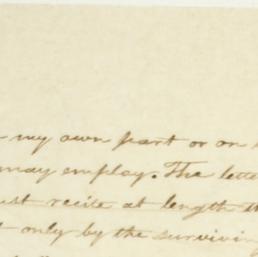 my own part or on
may employ. The lette
ust recite at length th
only by the surviving